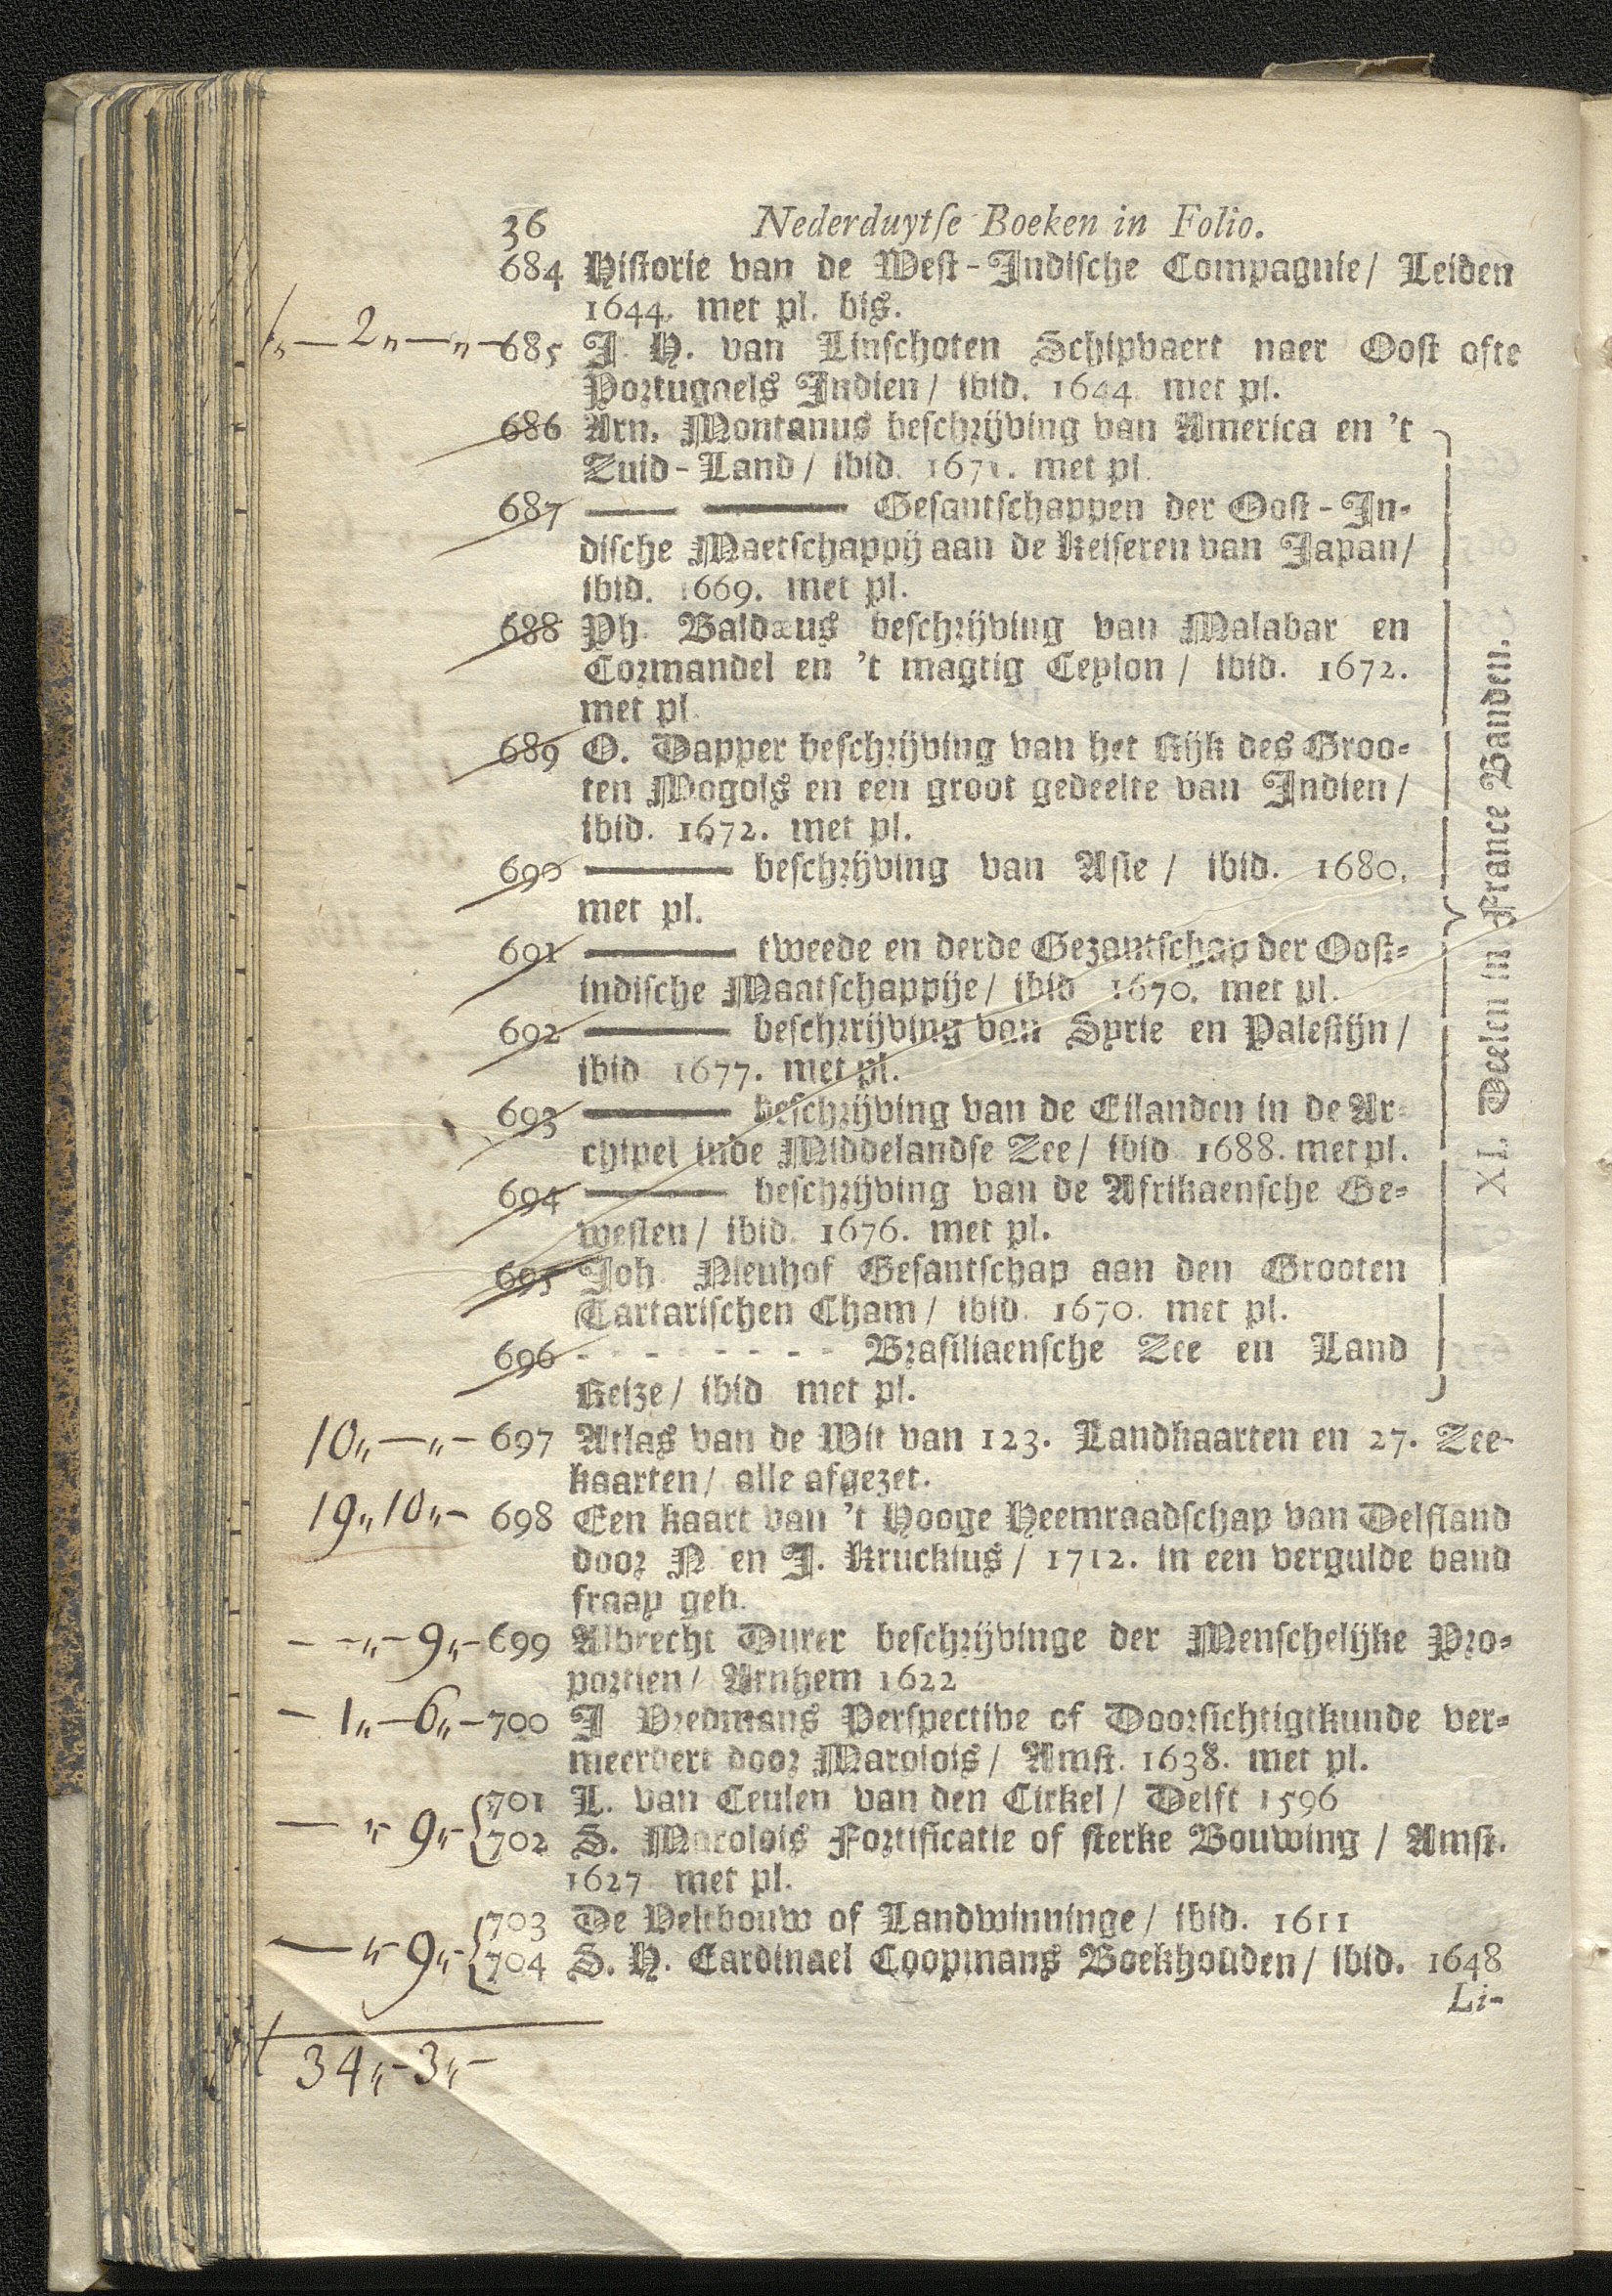 36 Nederduytse Boeken in Folio.
684 Historie van de West-Indische Compagnie/ Leiden
1644. met pl. bis.
1„—2„—„— 685 J. H. van Linschoten Schipvaert naer Oost ofte
Portugaels Indien/ ibid. 1644. met pl.
686 Arn. Montanus beschrijving van America en 't
Zuid-Land/ ibid. 1671. met pl.
687 —— —— Gesantschappen der Oost-In-
dische Maetschappij aan de Keiseren van Japan/
ibid. 1669. met pl.
688 Ph. Baldæus beschrijving van Malabar en
Cormandel en 't magtig Ceylon/ ibid. 1672.
met pl.
689 O. Dapper beschrijving van het Rijk des Groo-
ten Mogols en een groot gedeelte van Indien/
ibid. 1672. met pl.
690 —— beschrijving van Asie/ ibid. 1680.
met pl.
691 —— tweede en derde Gezantschap der Oost-
indische Maatschappije/ ibid 1670. met pl.
692 —— beschrrijving van Syrie en Palestijn/
ibid 1677. met pl.
693 —— beschrijving van de Eilanden in de Ar-
chipel inde Middelandse Zee/ ibid 1688. met pl.
694 —— beschrijving van de Afrikaensche Ge-
westen/ ibid. 1676. met pl.
695 Joh. Nieuhof Gesantschap aan den Grooten
Tartarischen Cham/ ibid. 1670. met pl.
696 - - - - - - - - Brasiliaensche Zee en Land
Reize/ ibid met pl.
XI. Deelen in France Banden.
10„—„— 697 Atlas van de Wit van 123. Landkaarten en 27. Zee-
kaarten/ alle afgezet.
19„10„— 698 Een kaart van 't Hooge Heemraadschap van Delfland
door N. en J. Kruckius/ 1712. in een vergulde band
fraay geb.
— —„—9„— 699 Albrecht Durer beschrijvinge der Menschelijke Pro-
portien/ Arnhem 1622
— 1„—6„— 700 J Vredmans Perspective of Doorsichtigtkunde ver-
meerdert door Marolois/ Amst. 1638. met pl.
701 L. van Ceulen van den Cirkel/ Delft 1596
— „ 9„— 702 S. Marolois Fortificatie of sterke Bouwing/ Amst.
1627 met pl.
703 De Veltbouw of Landwinninge/ ibid. 1611
— „ 9„— 704 S. H. Cardinael Coopmans Boekhouden/ ibid. 1648
Li-
34„—3„—